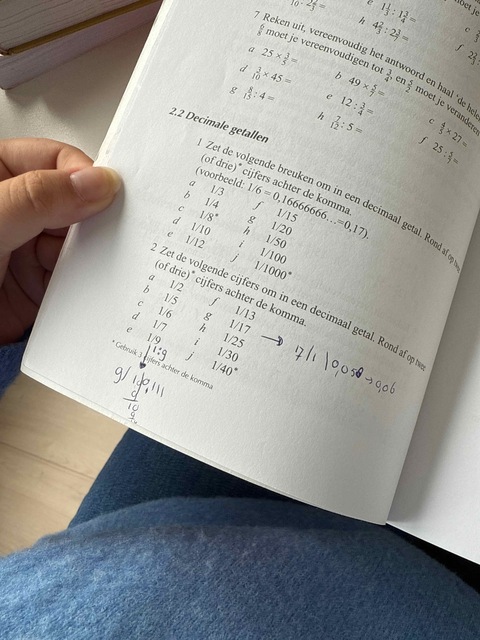 7 Reken uit, vereenvoudig het antwoord en haal 'de hele
6/8 moet je vereenvoudigen tot 3/4 en 5/2 moet je veranderen
a 25 ×
b 49 × 5/7 =
c 4/3 × 27 =
d 3/10 × 45 =
e 12 : 3/4 =
f 25 : 5/7 =
g 8/15 : 4 =
h 7/12 : 5 =
2.2 Decimale getallen
1 Zet de volgende breuken om in een decimaal getal. Rond af op twee
(of drie)* cijfers achter de komma.
(voorbeeld: 1/6 = 0,16666666...=0,17).
a 1/3 f 1/15
b 1/4 g 1/20
c 1/8* h 1/50
d 1/10 i 1/100
e 1/12 j 1/1000*
2 Zet de volgende cijfers om in een decimaal getal. Rond af op twee
(of drie)* cijfers achter de komma.
a 1/2 f 1/13
b 1/5 g 1/17
c 1/6 h 1/25
d 1/7 i 1/30
e 1/9 j 1/40*
* Gebruik 3 cijfers achter de komma
1:9